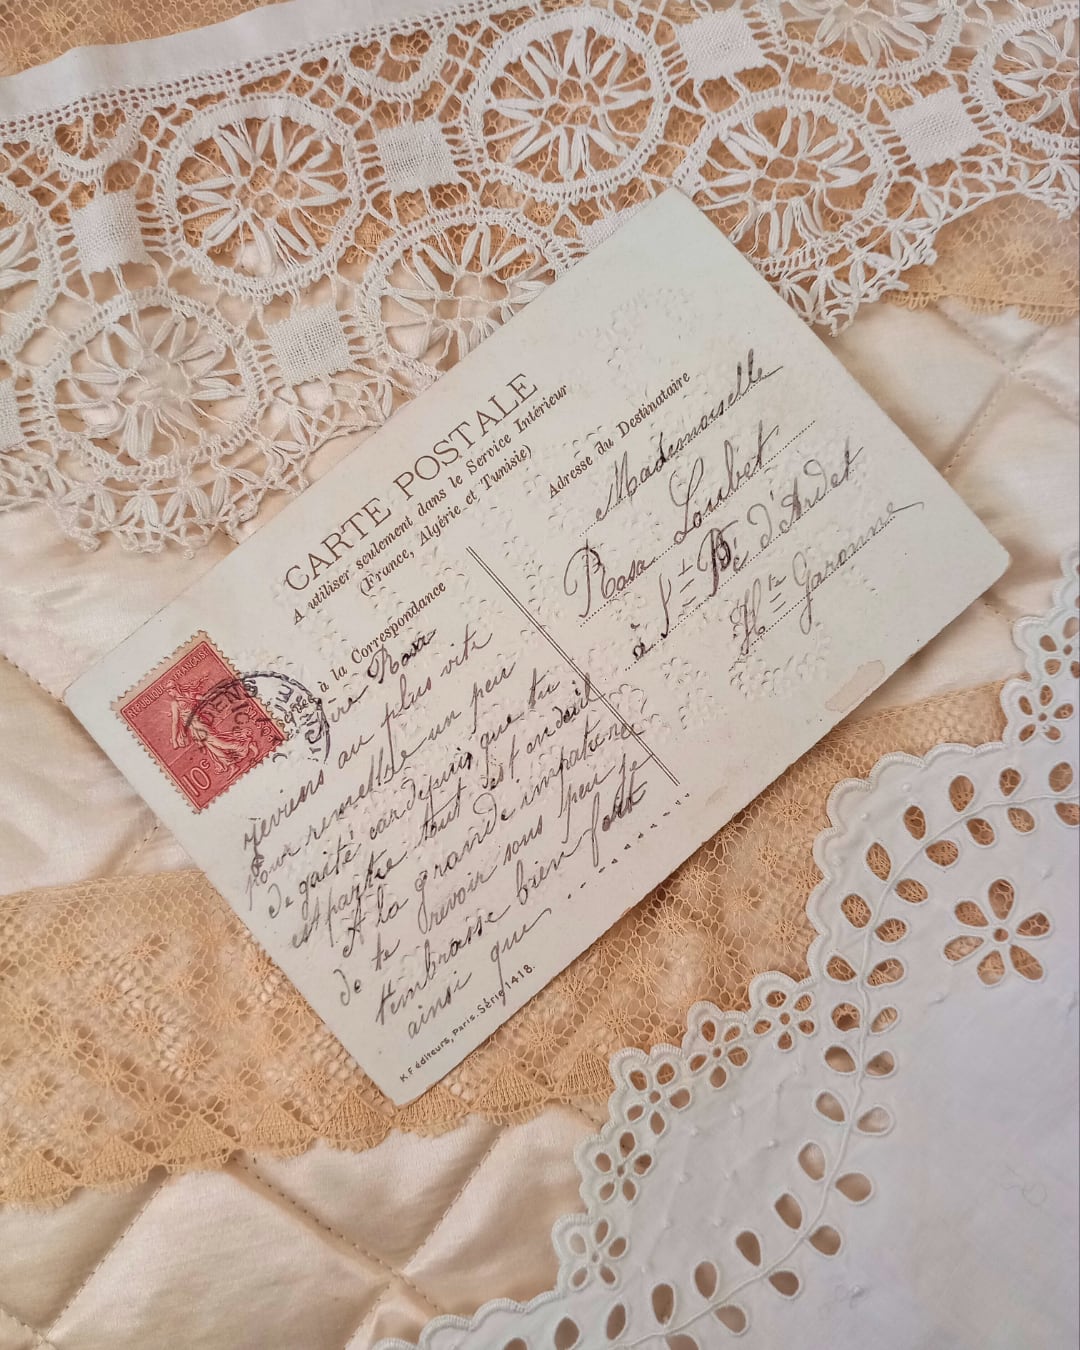 CARTE POSTALE
A utiliser seulement dans le Service Intérieur
(France, Algérie et Tunisie)
à la Correspondance
Adresse du Destinataire
REPUBLIQUE FRANÇAISE
10c
Rosa
reviens au plus vite
pour remettre un peu
de gaité car depuis que tu
est partie tout est en deuil
A la grande impatience
de te revoir sous peu je
t'embrasse bien fort
ainsi que
Mademoiselle
Rosa Loubet
à St Pé d'Ardet
Hte Garonne
K.F. éditeurs, Paris. Série 1418.